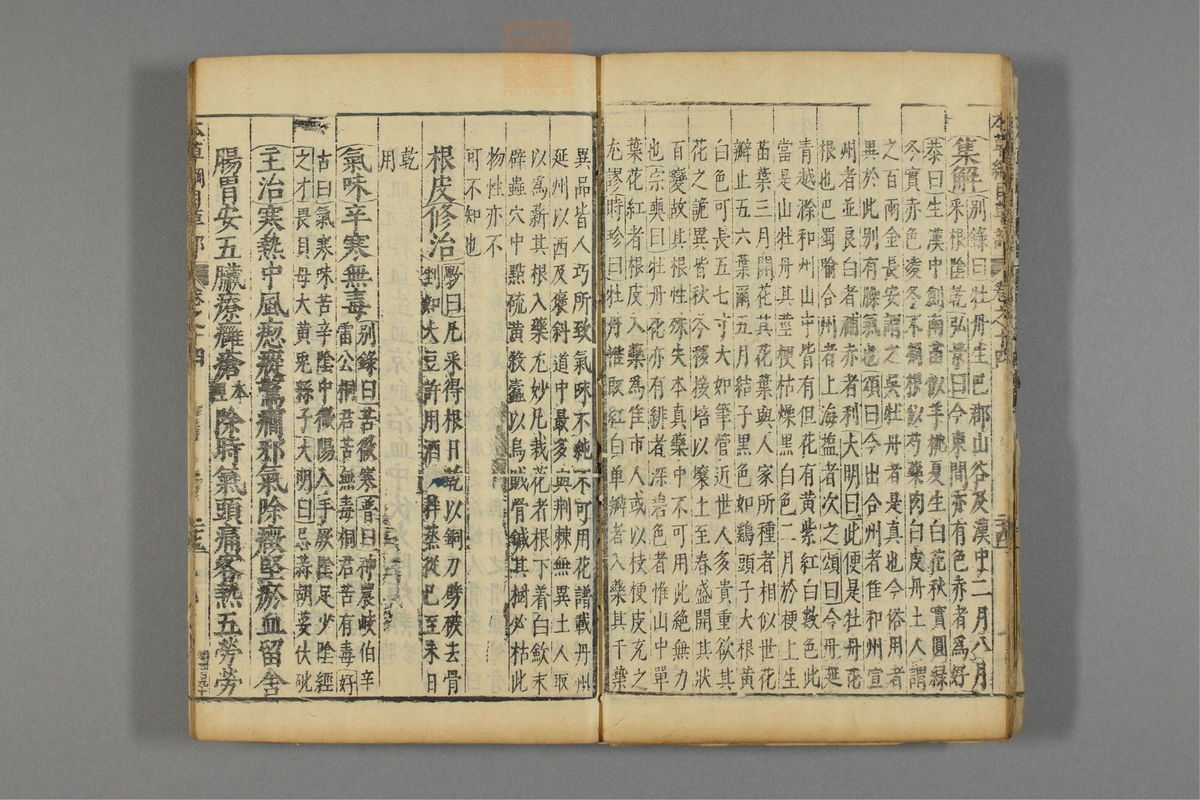 本草綱目草部 卷之十四 二十四
集解 別錄曰牡丹生巴郡山谷及漢中二月八月
采根陰乾弘景曰今東間亦有色赤者為好
恭曰生漢中劍南苗似羊桃夏生白花秋實圓綠
冬實赤色凌冬不凋根似芍藥肉白皮丹土人謂
之百兩金長安謂之吳牡丹者是真也今俗用者
異於此別有臊氣也頌曰今出合州者佳和州宣
州者並良白者補赤者利大明曰此便是牡丹花
根也巴蜀喻合州者上海盐者次之頌曰今丹延
青越滁和州山中皆有但花有黃紫紅白數色此
當是山牡丹其莖梗枯燥黑白色二月於梗上生
苗葉三月開花其花葉與人家所種者相似世花
瓣止五六葉爾五月結子黑色如鷄頭子大根黃
白色可長五七寸大如筆管近世人多貴重欲其
花之詭異皆秋冬移接培以壤土至春盛開其狀
百變故其根性殊失本真藥中不可用此絕無力
也宗奭曰牡丹花亦有緋者深碧色者惟山中單
葉花紅者根皮入藥為佳市人或以枝梗皮充之
尤謬時珍曰牡丹惟取紅白單瓣者入藥其千葉
異品皆人巧所致氣味不純不可用花譜載丹州
延州以西及褒斜道中最多與荆棘無異土人取
以為薪其根入藥尤妙凡栽花者根下着白斂末
辟蟲穴中點硫黃殺蠹以烏賊骨鍼其樹必枯此
物性亦不
可不知也
根皮修治 斅曰凡采得根日乾以銅刀劈破去骨
剉如大豆許用酒拌蒸從巳至未日
乾
用
氣味辛寒無毒 別錄曰苦微寒普曰神農岐伯辛
雷公桐君苦無毒桐君苦有毒好
古曰氣寒味苦辛陰中微陽入手厥陰足少陰經
之才畏貝母大黃兎絲子大明曰忌蒜胡荽伏砒
主治寒熱中風瘛瘲驚癇邪氣除癥堅瘀血留舍
腸胃安五臟療癰瘡本經除時氣頭痛客熱五勞勞
本草綱目草部 卷之十四 二十五